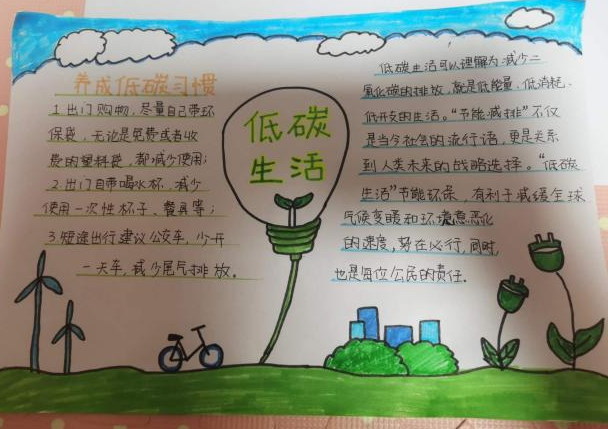 养成低碳习惯
1.出门购物,尽量自己带环
保袋,无论是免费或者收
费的塑料袋,都减少使用;
2.出门自带喝水杯,减少
使用一次性杯子、餐具等;
3.短途出行建议公交车,少开
一天车,减少尾气排放。
低碳
生活
低碳生活可以理解为:减少二
氧化碳的排放,就是低能量、低消耗、
低开支的生活。“节能减排”不仅
是当今社会的流行语,更是关系
到人类未来的战略选择。“低碳
生活”节能环保,有利于减缓全球
气候变暖和环境恶化
的速度,势在必行,同时
也是每位公民的责任。